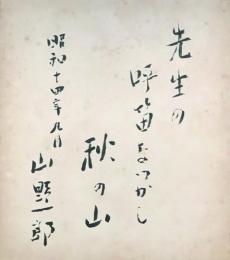 先生の
呼笛なつかし
秋の山
昭和十四年九月
山野一郎